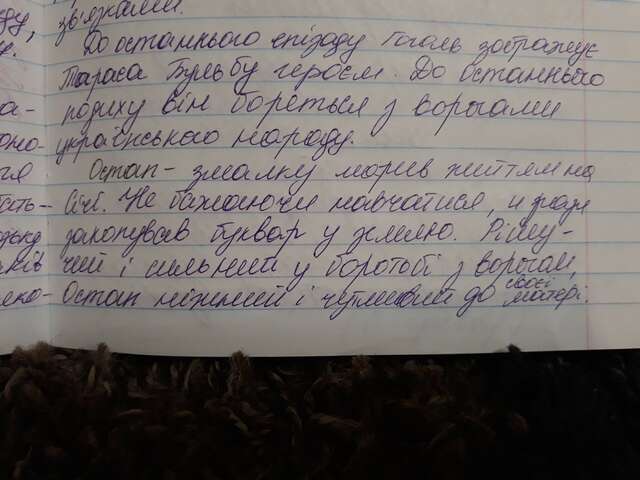 ду, зв'язками.
у. До останнього епізоду Гоголь зображує
Тараса Бульбу героєм. До останнього
а- подиху він бореться з ворогами
оно- українського народу.
ня Остап - змалку марив життям на
ість- Січі. Не бажаючи навчатися,
дську закопував буквар у землю. Рішу-
ків чий і сильний у боротьбі з ворогом,
еко- Остап ніжний і чутливий до своєї матері.